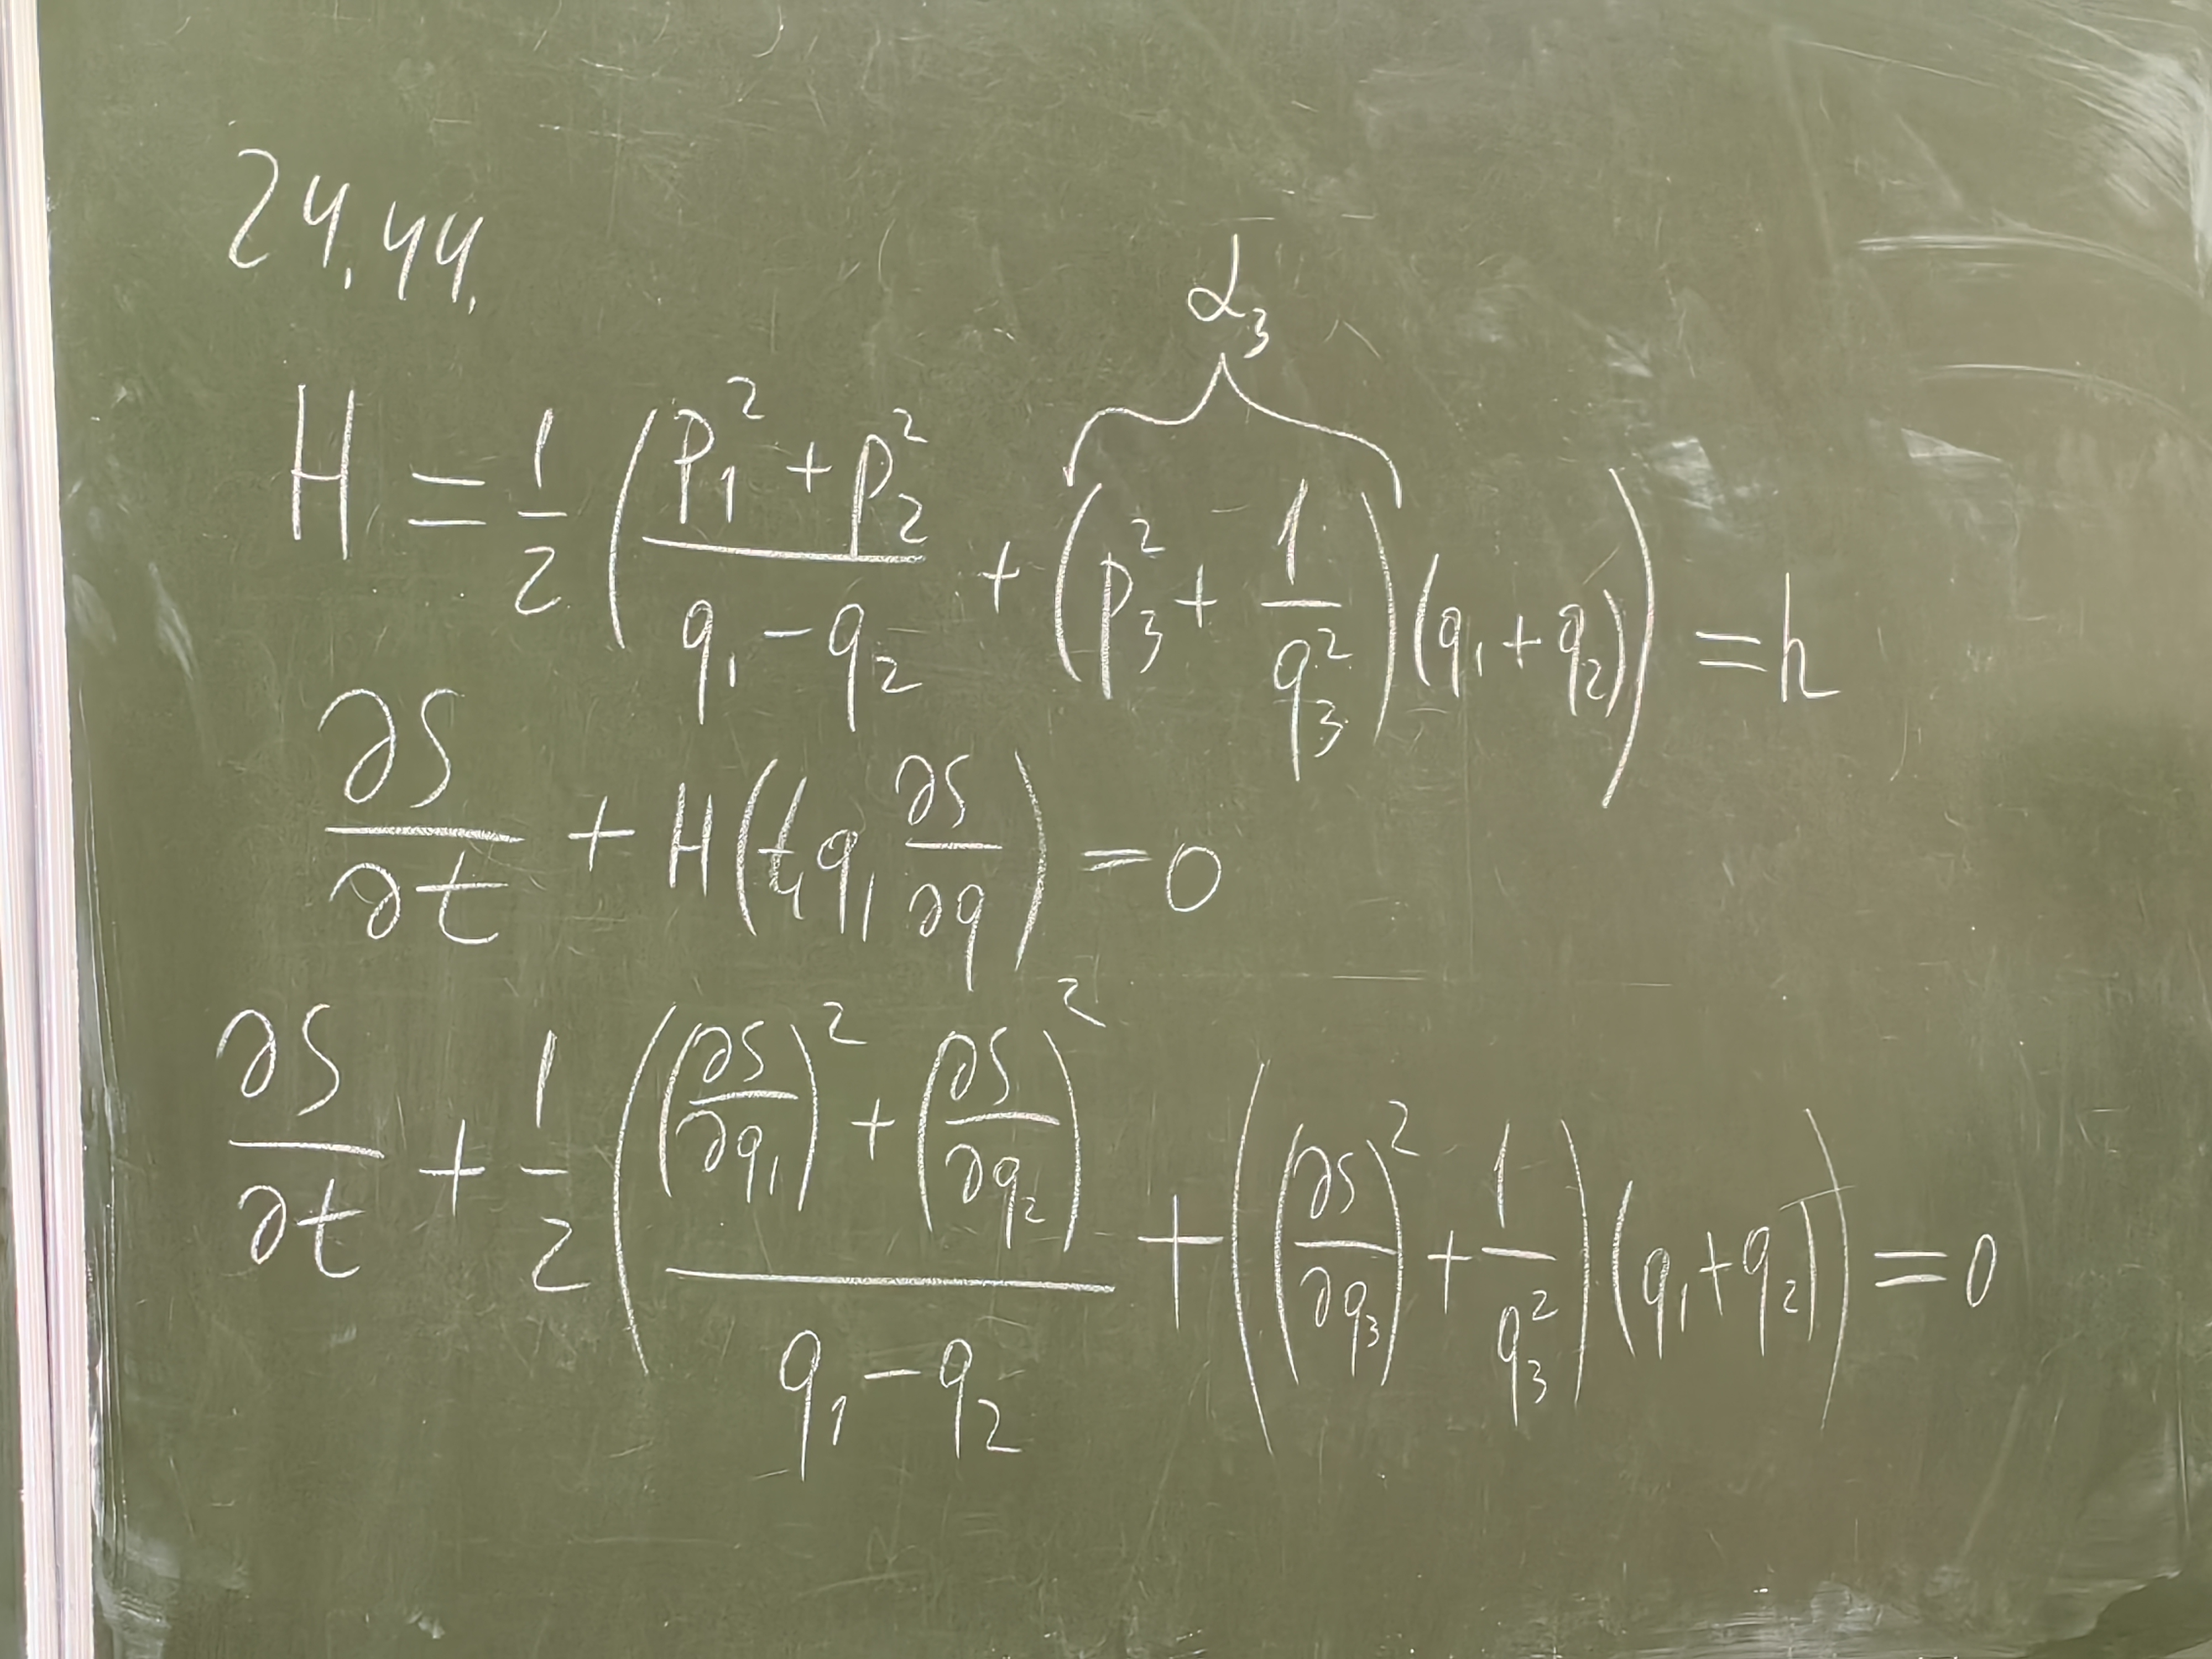 24.44.
α₃
H = 1/2 ( (p₁² + p₂²)/(q₁ - q₂) + (p₃² + 1/q₃²)(q₁ + q₂) ) = h
∂S/∂t + H(t, q, ∂S/∂q) = 0
∂S/∂t + 1/2 ( ((∂S/∂q₁)² + (∂S/∂q₂)²)/(q₁ - q₂) + ( ((∂S/∂q₃)² + 1/q₃²)(q₁ + q₂) ) = 0